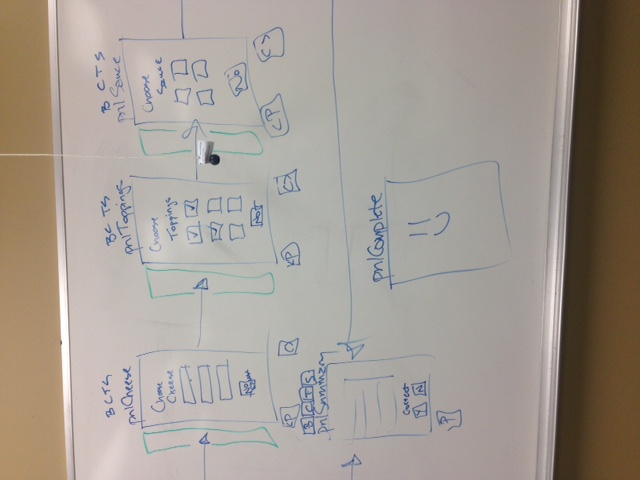 B C T S
pnlCheese
Choose
Cheese
No
<P
B C T S
pnlToppings
Choose
Toppings
Not
<P
C>
B C T S
pnlSauce
Choose
Sauce
No
<P
C>
B C T S
pnlSummary
Correct
Y N
P
pnlComplete